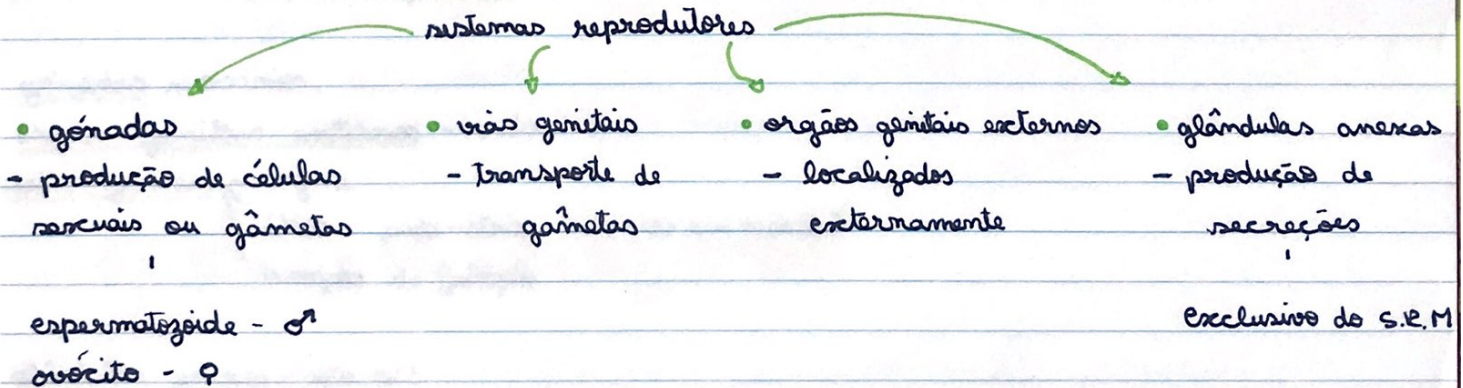 sistemas reprodutores
• gónadas
- produção de células
sexuais ou gâmetas
espermatozoide - ♂
ovócito - ♀
• vias genitais
- transporte de
gâmetas
• orgãos genitais externos
- localizados
externamente
• glândulas anexas
- produção de
secreções
exclusivo do S.R.M